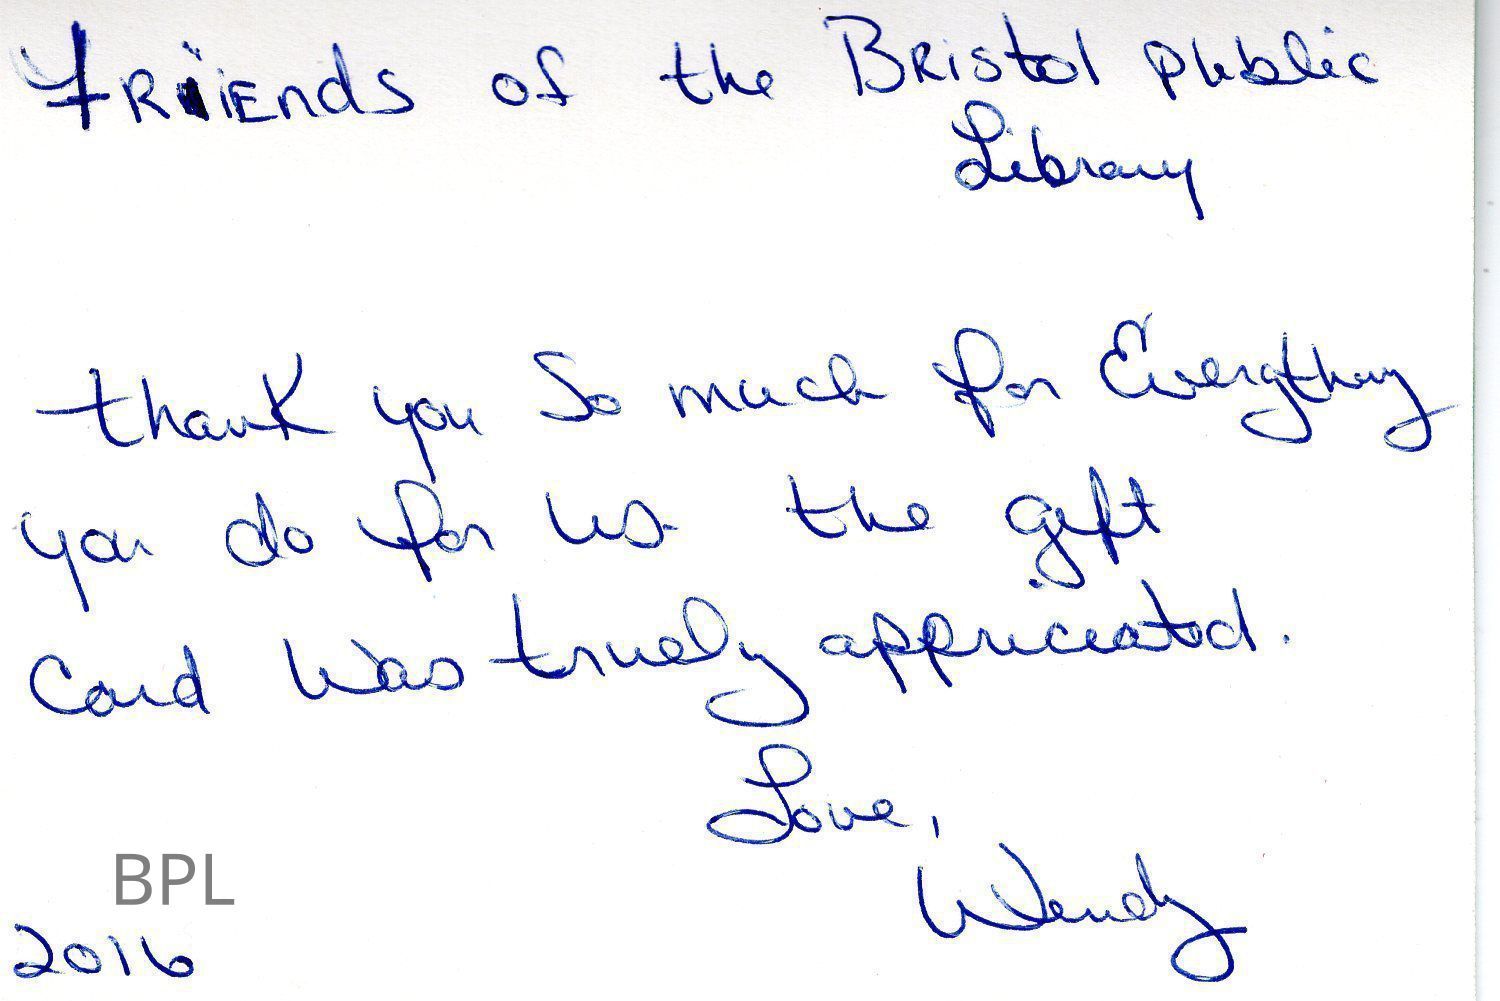 FRiENds of the BRistol Public
Library
thank you So much for Everything
you do for us. the gift
Card Was truely appriciated.
Love,
Wendy
BPL
2016